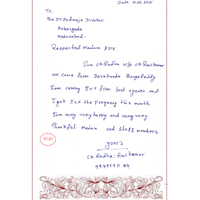 Date 15.02.2015
To,
The Dr Padmaja Divakar
Habsiguda
Hyderabad.
Respected Madam / Sir
Iam CH.Radha w/o CH.Ravikumar
we came from Ranga Reddy
Iam coming I.v.f from last years and
I got I.v.f the pregnancy this month
Iam very very happy and very very
Thankful madam and Staff members
yours
CH.Radha: Ravi kumar